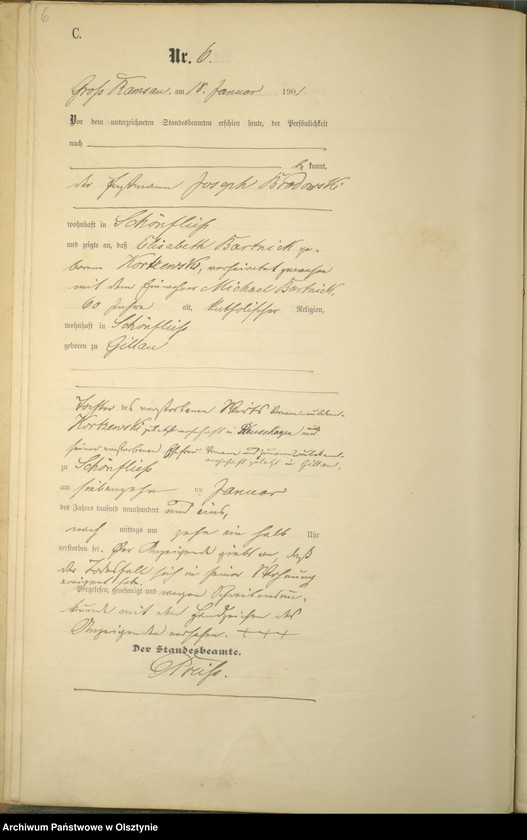 6
C.
Nr. 6.
Groß Ramsau, am 18. Januar 1901.
Vor dem unterzeichneten Standesbeamten erschien heute, der Persönlichkeit
nach
be kannt,
der Joseph Brodowski
wohnhaft in Schönfließ
und zeigte an, daß Elisabeth Bartnick ge-
borene Kortzewski, verheirathet gewesen
mit dem Michael Bartnick,
60 Jahre alt, katholischer Religion,
wohnhaft in Schönfließ
geboren zu Gillau
Tochter des verstorbenen Wirts
Kortzewski zuletzt wohnhaft in und
seiner verstorbenen Ehefrau
wohnhaft zuletzt in Gillau,
zu Schönfließ
am siebenzehn ten Januar
des Jahres tausend neunhundert und eins,
nach mittags um zehn ein halb Uhr
verstorben sei. Der Anzeigende giebt an, daß
der Todesfall sich in seiner Wohnung
ereignet habe.
Vorgelesen, genehmigt und wegen Schreibensun-
kunde mit den Handzeichen des
Anzeigenden versehen. + + +
Der Standesbeamte.
Preiß.
Archiwum Państwowe w Olsztynie